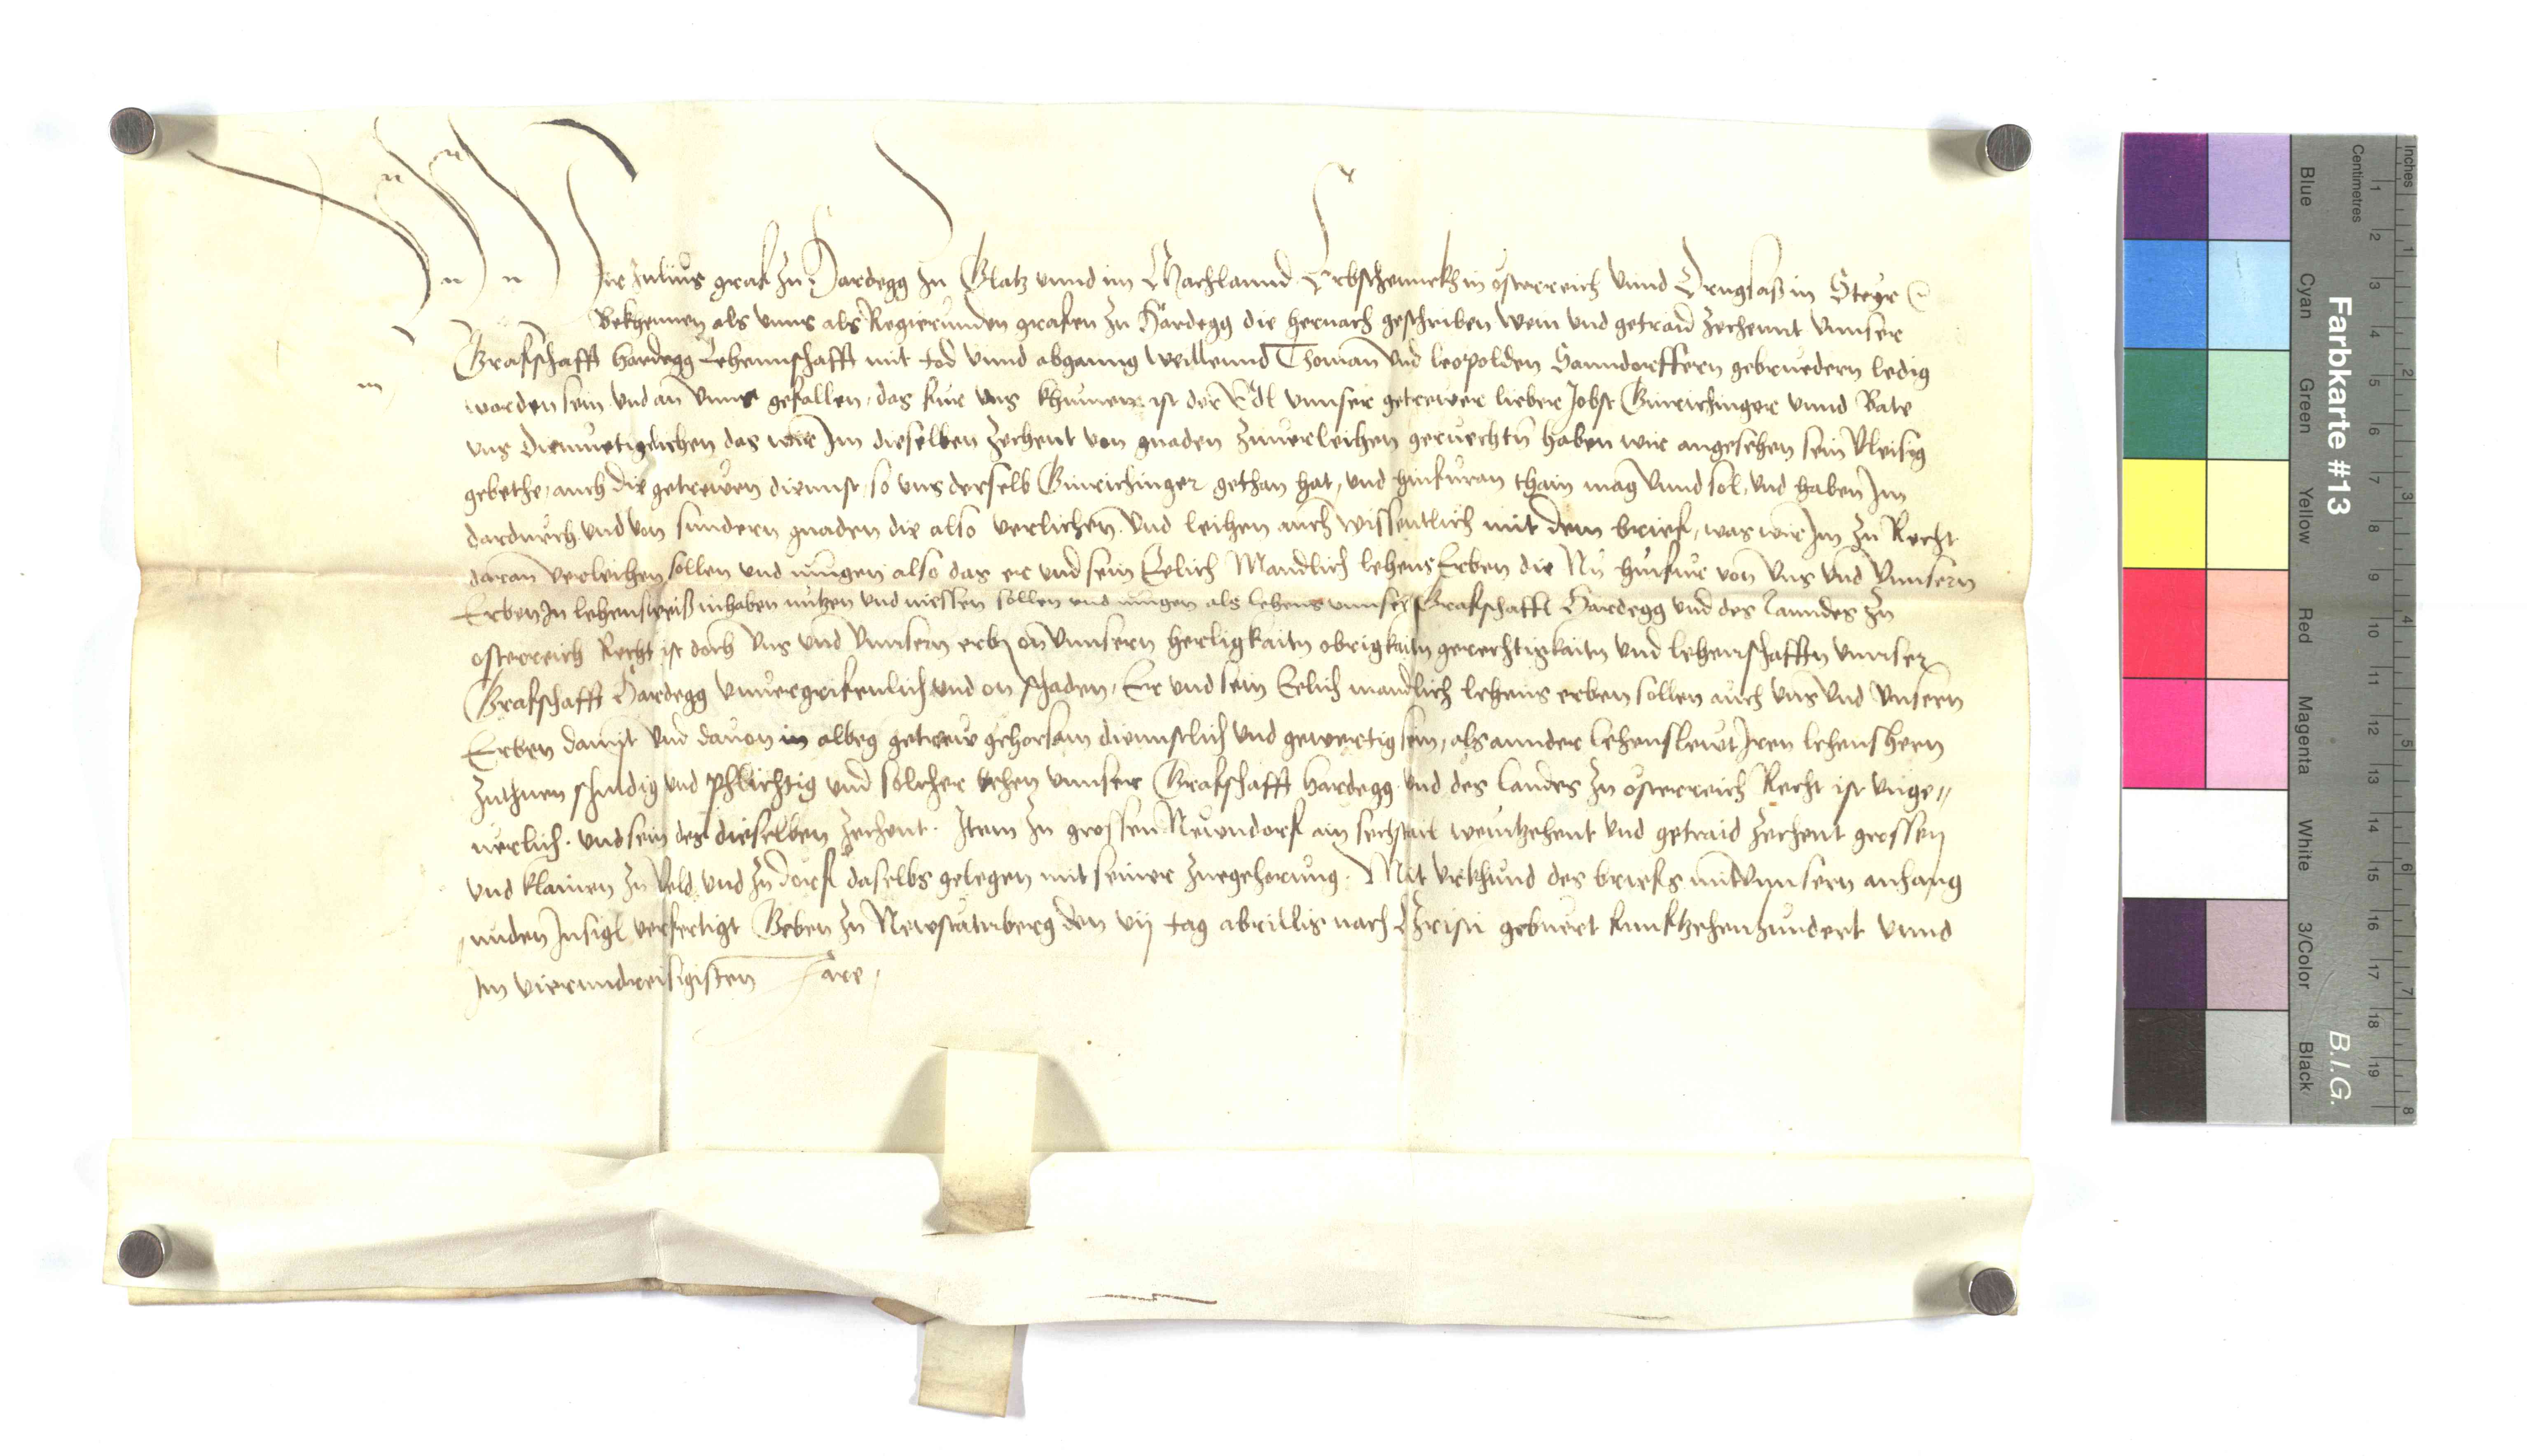 Wir Julius graf zu Hardegg zu Glatz unnd im Machlannd Erbschennckh in osterreich unnd Drugsäß in Steyr
Bekhennen als unns als Regierunden grafen zu Hardegg die hernach geschriben wein und getraid zechennt unnser
Grafschafft Hardegg Lehennschafft mit tod unnd abganng weillennd Thoman und leopolden Sanndorffern gebruedern ledig
worden sein und an unns gefallen, das fur uns khumen ist der Edl unnser getrewer lieber Jobst unnd Bate
uns diemuetigclichen das wir Im dieselben zechent von gnaden zuuerleihen geruechtn haben wir angesehen sein vleisig
gebethe, auch die getrewen diennst, so uns derselb gethan hat, und hinfuran thain mag unnd sol, und haben Im
dardurch und von sundern gnaden die also verlichen und leihen auch wissentlich mit dem brief, was wir Im zu Recht
daran verleihen sollen und mugen also das er und sein Eelich Mandlich lehens Erben die Nu hinfur von uns und unnsern
Erben In lehensweiß inhaben nutzen und niessen sollen und mugen als lehens unnser Grafschafft Hardegg und des lanndes zu
osterreich Recht ist doch uns und unnsern erben on unnsern herligkaitn obrigkaitn gerechtigkaitn und lehenschafftn unnser
Grafschafft Hardegg unuergrifenlich und on schaden, Er und sein Eelich mandlich lehens erben sollen auch uns und unsern
Erben damit und dauon in albeg getrew gehorsam diennstlich und gewertig sein, als annder lehenslewt Iren lehenshern
zuthuen schuldig und phlichtig und solcher lehen unnser Grafschafft hardegg und des landes zu osterreich Recht ist unge=
uerlich. und sein des dieselben zechent. Item zu grossen Newndorf ain sechstail weintzehent und getraid zechent grossen
und klainen zu veld und zu dorf daselbs gelegen mit seiner zuegehorung. Mit urkhund des briefs mit unnsern anhang
unden Insigl verfertigt Geben zu den vij tag abrillis nach Christi geburt funftzehenhundert unnd
Im vierundreisigisten Jare,
Farbkarte #13
B.I.G.
Inches
Centimetres
Blue Cyan Green Yellow Red Magenta White 3/Color Black
1 2 3 4 5 6 7 8 9 10 11 12 13 14 15 16 17 18 19
1 2 3 4 5 6 7 8